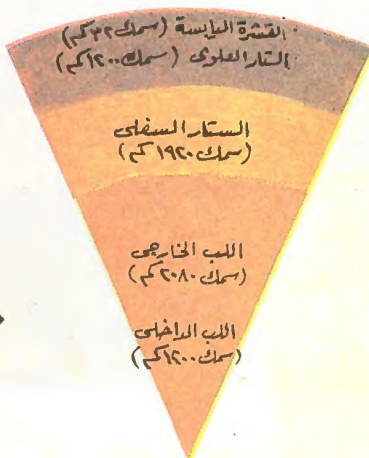 القشرة اليابسة (سمك ٣٢ كم)
الستار العلوى (سمك ١٢٠٠ كم)
الستار السفلى
(سمك ١٩٢٠ كم)
اللب الخارجى
(سمك ٢٠٨٠ كم)
اللب الداخلى
(سمك ١٢٠٠ كم)